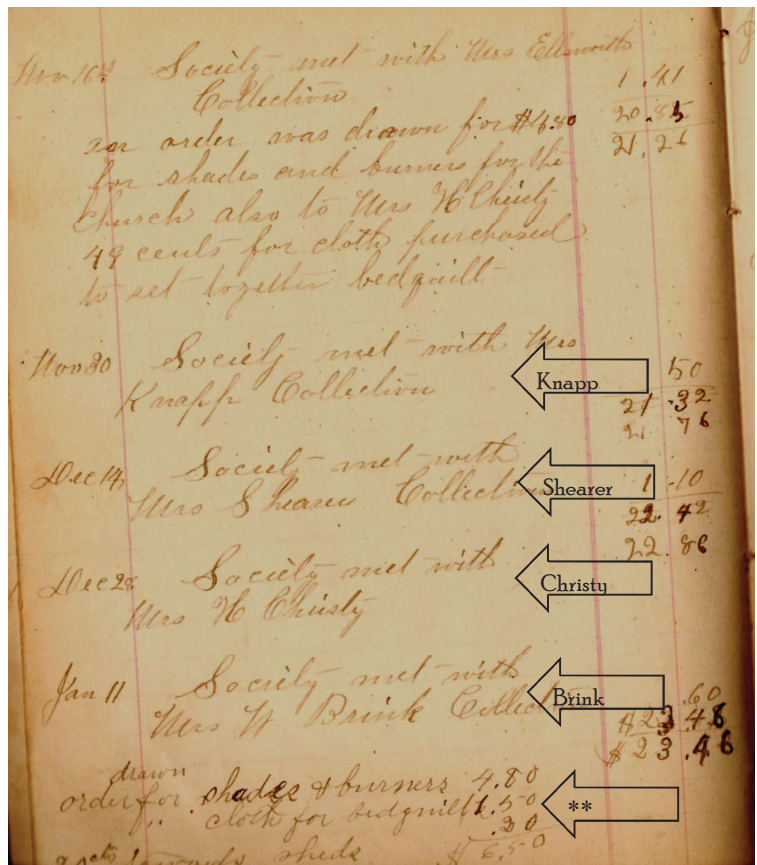 Nov 16th Society met with Mrs Ellsworth
Collection 1.41
an order was drawn for $4.80 20.85
for shades and burners for the 21.26
church also to Mrs H Christy
49 cents for cloth purchased
to set together bedquilt
Nov 30 Society met with Mrs
Knapp Collection 50
Knapp
21.32
21 76
Dec 14, Society met with
Mrs Shearer Collection 1.10
Shearer
22.42
22.86
Dec 28 Society met with
Mrs H Christy
Christy
Jan 11 Society met with
Mrs W Brink Collection .60
Brink
$23.48
$23.46
drawn
order for shades & burners 4.80
" cloth for bedquilt 1.50
**
.20
$6.50
towards sheds